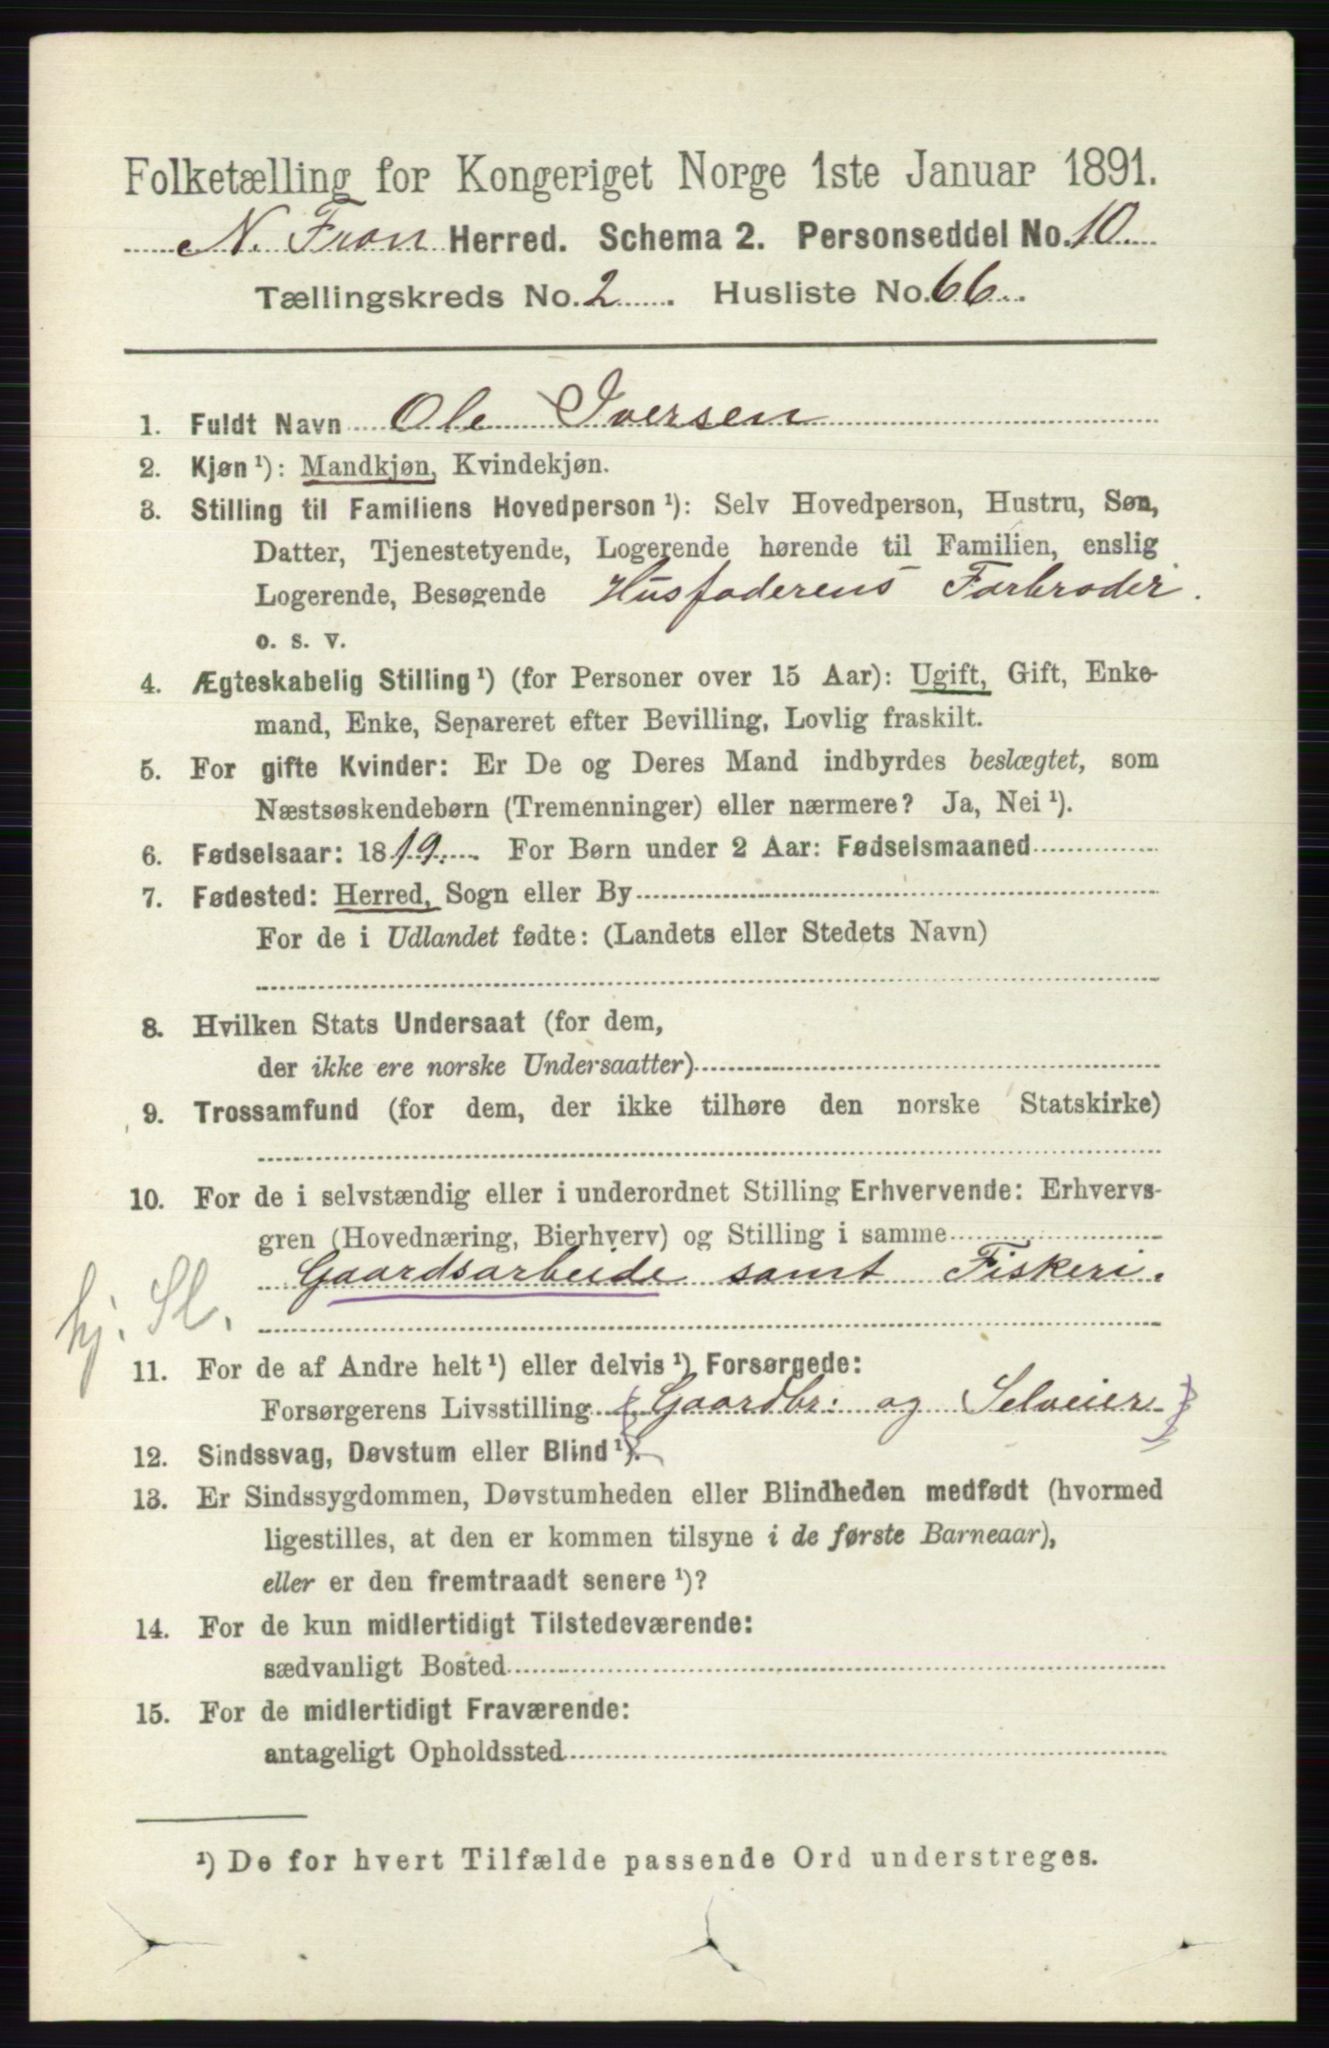 Folketælling for Kongeriget Norge 1ste Januar 1891.
N. Fron Herred. Schema 2. Personseddel No. 10.
Tællingskreds No. 2. Husliste No. 66.
1. Fuldt Navn Ole Iversen
2. Kjøn ¹): Mandkjøn, Kvindekjøn.
3. Stilling til Familiens Hovedperson ¹): Selv Hovedperson, Hustru, Søn,
Datter, Tjenestetyende, Logerende hørende til Familien, enslig
Logerende, Besøgende Husfaderens Farbroder.
o. s. v.
4. Ægteskabelig Stilling ¹) (for Personer over 15 Aar): Ugift, Gift, Enke-
mand, Enke, Separeret efter Bevilling, Lovlig fraskilt.
5. For gifte Kvinder: Er De og Deres Mand indbyrdes beslægtet, som
Næstsøskendebørn (Tremenninger) eller nærmere? Ja, Nei ¹).
6. Fødselsaar: 1819. For Børn under 2 Aar: Fødselsmaaned
7. Fødested: Herred, Sogn eller By
For de i Udlandet fødte: (Landets eller Stedets Navn)
8. Hvilken Stats Undersaat (for dem,
der ikke ere norske Undersaatter)
9. Trossamfund (for dem, der ikke tilhøre den norske Statskirke)
10. For de i selvstændig eller i underordnet Stilling Erhvervende: Erhvervs-
gren (Hovednæring, Bierhverv) og Stilling i samme
Gaardsarbeide samt Fiskeri.
hj. Sl.
11. For de af Andre helt ¹) eller delvis ¹) Forsørgede:
Forsørgerens Livsstilling (Gaardbr: og Selveier)
12. Sindssvag, Døvstum eller Blind ¹).
13. Er Sindssygdommen, Døvstumheden eller Blindheden medfødt (hvormed
ligestilles, at den er kommen tilsyne i de første Barneaar),
eller er den fremtraadt senere ¹)?
14. For de kun midlertidigt Tilstedeværende:
sædvanligt Bosted
15. For de midlertidigt Fraværende:
antageligt Opholdssted
¹) De for hvert Tilfælde passende Ord understreges.